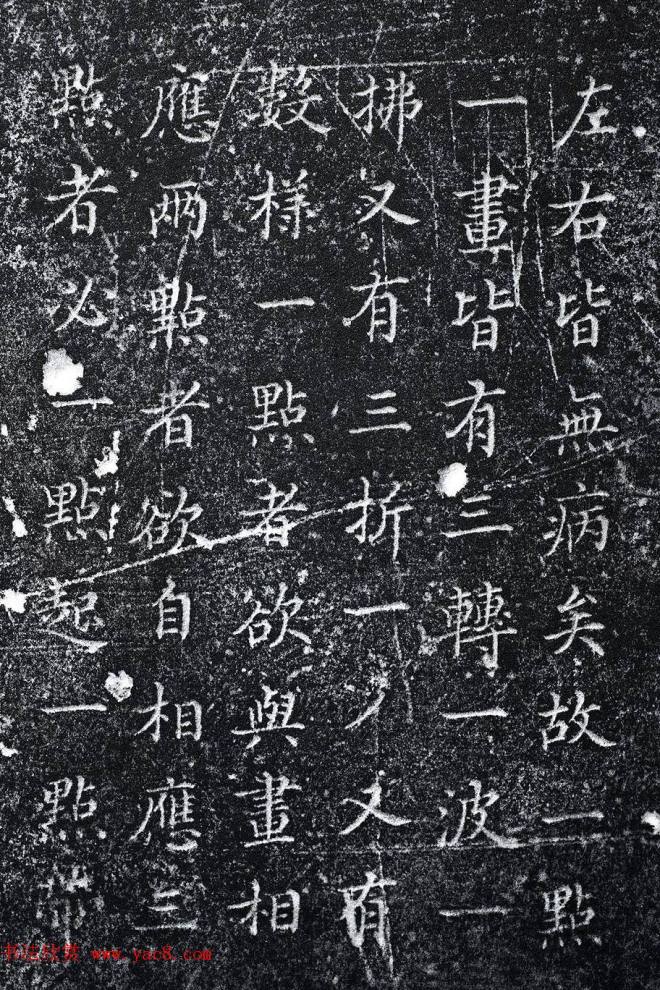 左右皆無病矣故一點
一畫皆有三轉一波一
拂又有三折一丿又有
數樣一點者欲與畫相
應兩點者欲自相應三
點者必一點起一點帶
书法欣赏 www.yac8.com